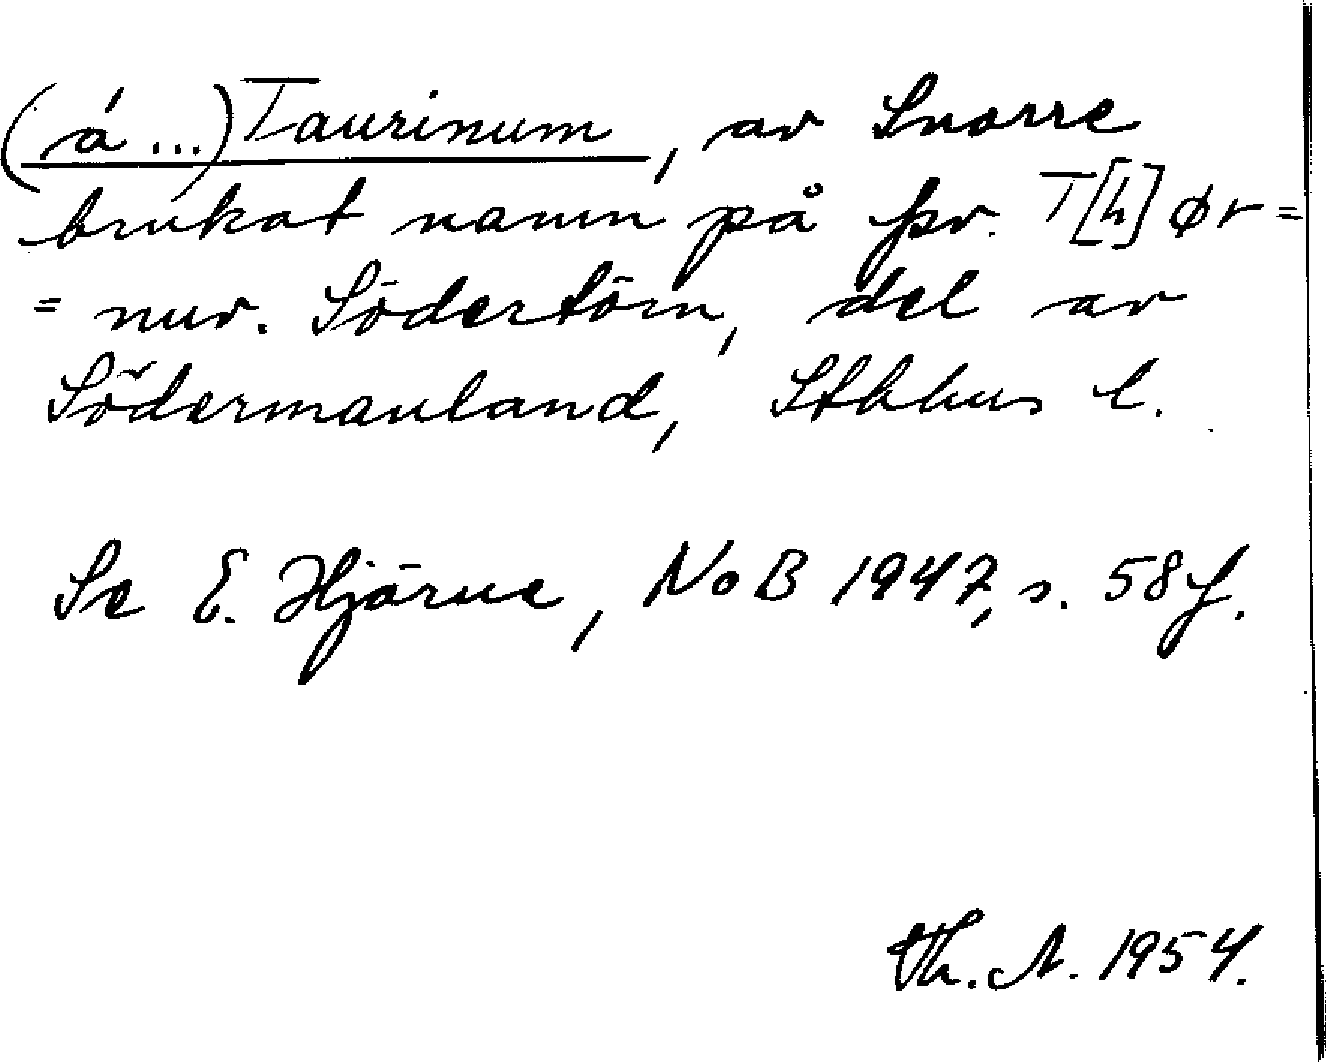 (á ...) Taurinum, av Snorre
brukat namn på fsv. T[h]ør =
= nuv. Södertörn, del av
Södermanland, Sthlms l.
Se E. Hjärne, NoB 1947, s. 58 f.
Th. A. 1954.